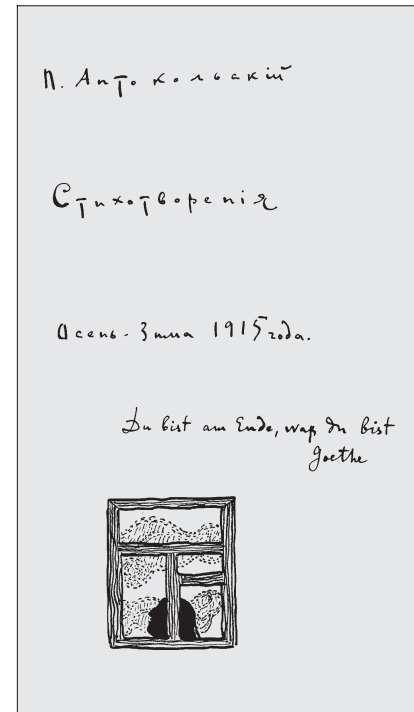 П. Антокольскій
Стихотворенія
Осень-Зима 1915 года.
Du bist am Ende, was du bist
Goethe